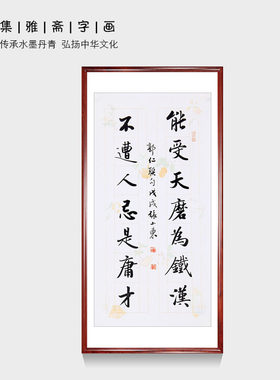 集雅斋字画
传承水墨丹青 弘扬中华文化
能受天磨為鐵漢
不遭人忌是庸才
戊戌張士東